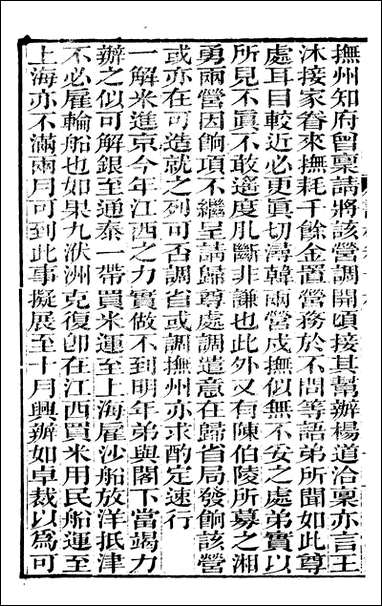 撫州知府曾稟請將該營調開頃接其幫辦楊道洽稟亦言王
沐接家眷來撫耗千餘金置營務於不問等語弟所聞如此尊
處耳目較近必更真切濤韓兩營戍撫似無不安之處弟實以
所見不真不敢遙度肊斷非謙也此外又有陳伯陵所募之湘
勇兩營因餉項不繼呈請歸尊處調遣意在歸省局發餉該營
或亦在可造就之列可否調省或調撫州亦求酌定速行
一解米進京今年江西之力實做不到明年弟與閣下當竭力
辦之似可解銀至通泰一帶買米運至上海雇沙船放洋抵津
不必雇輪船也如果九洑洲克復卽在江西買米用民船運至
上海亦不滿兩月可到此事擬展至十月興辦如卓裁以為可